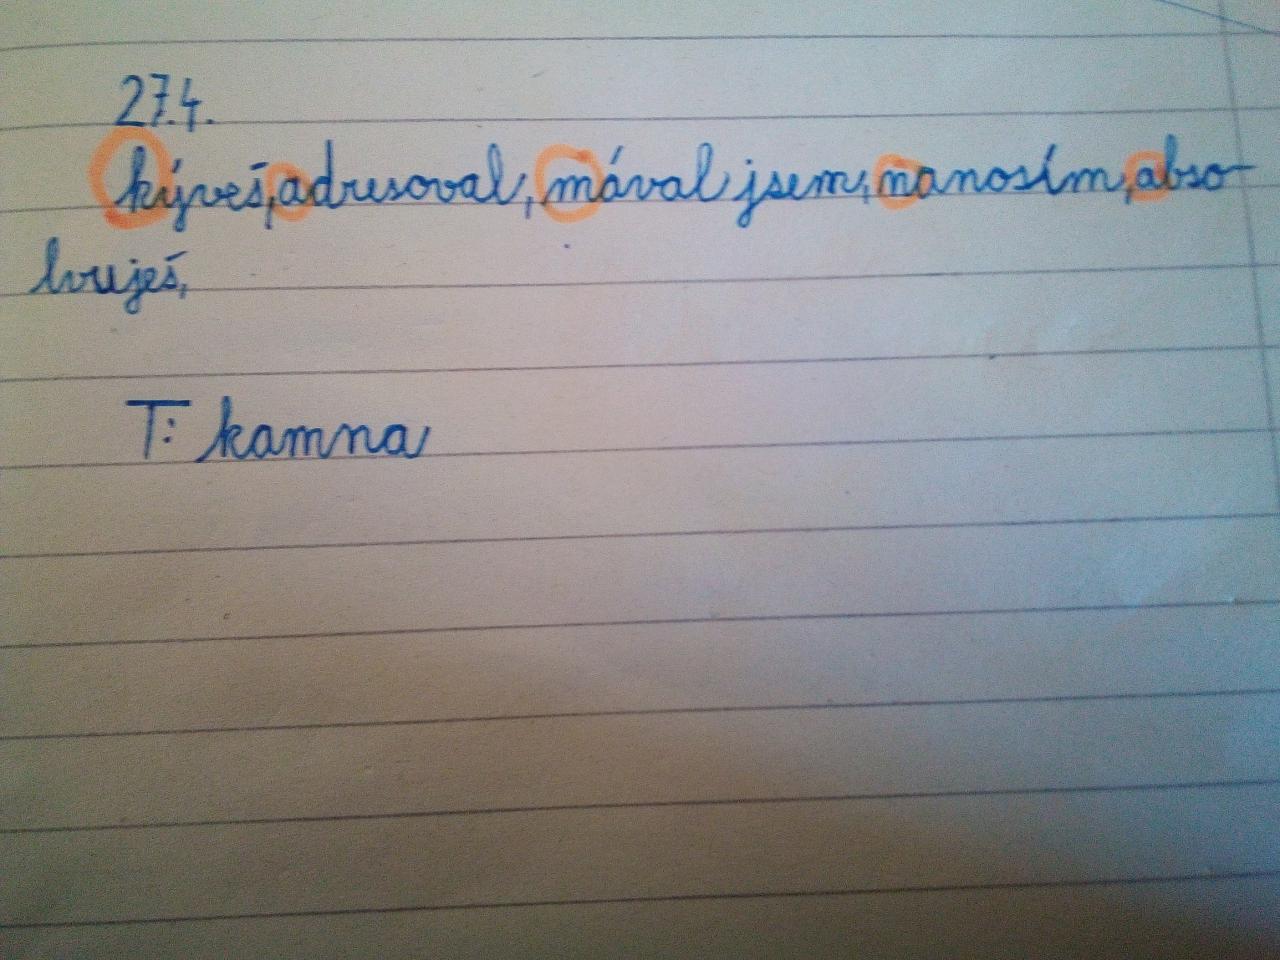 27.4.
kýveš, adresoval, mával jsem, nanosím, abso-
lvuješ,
T: kamna